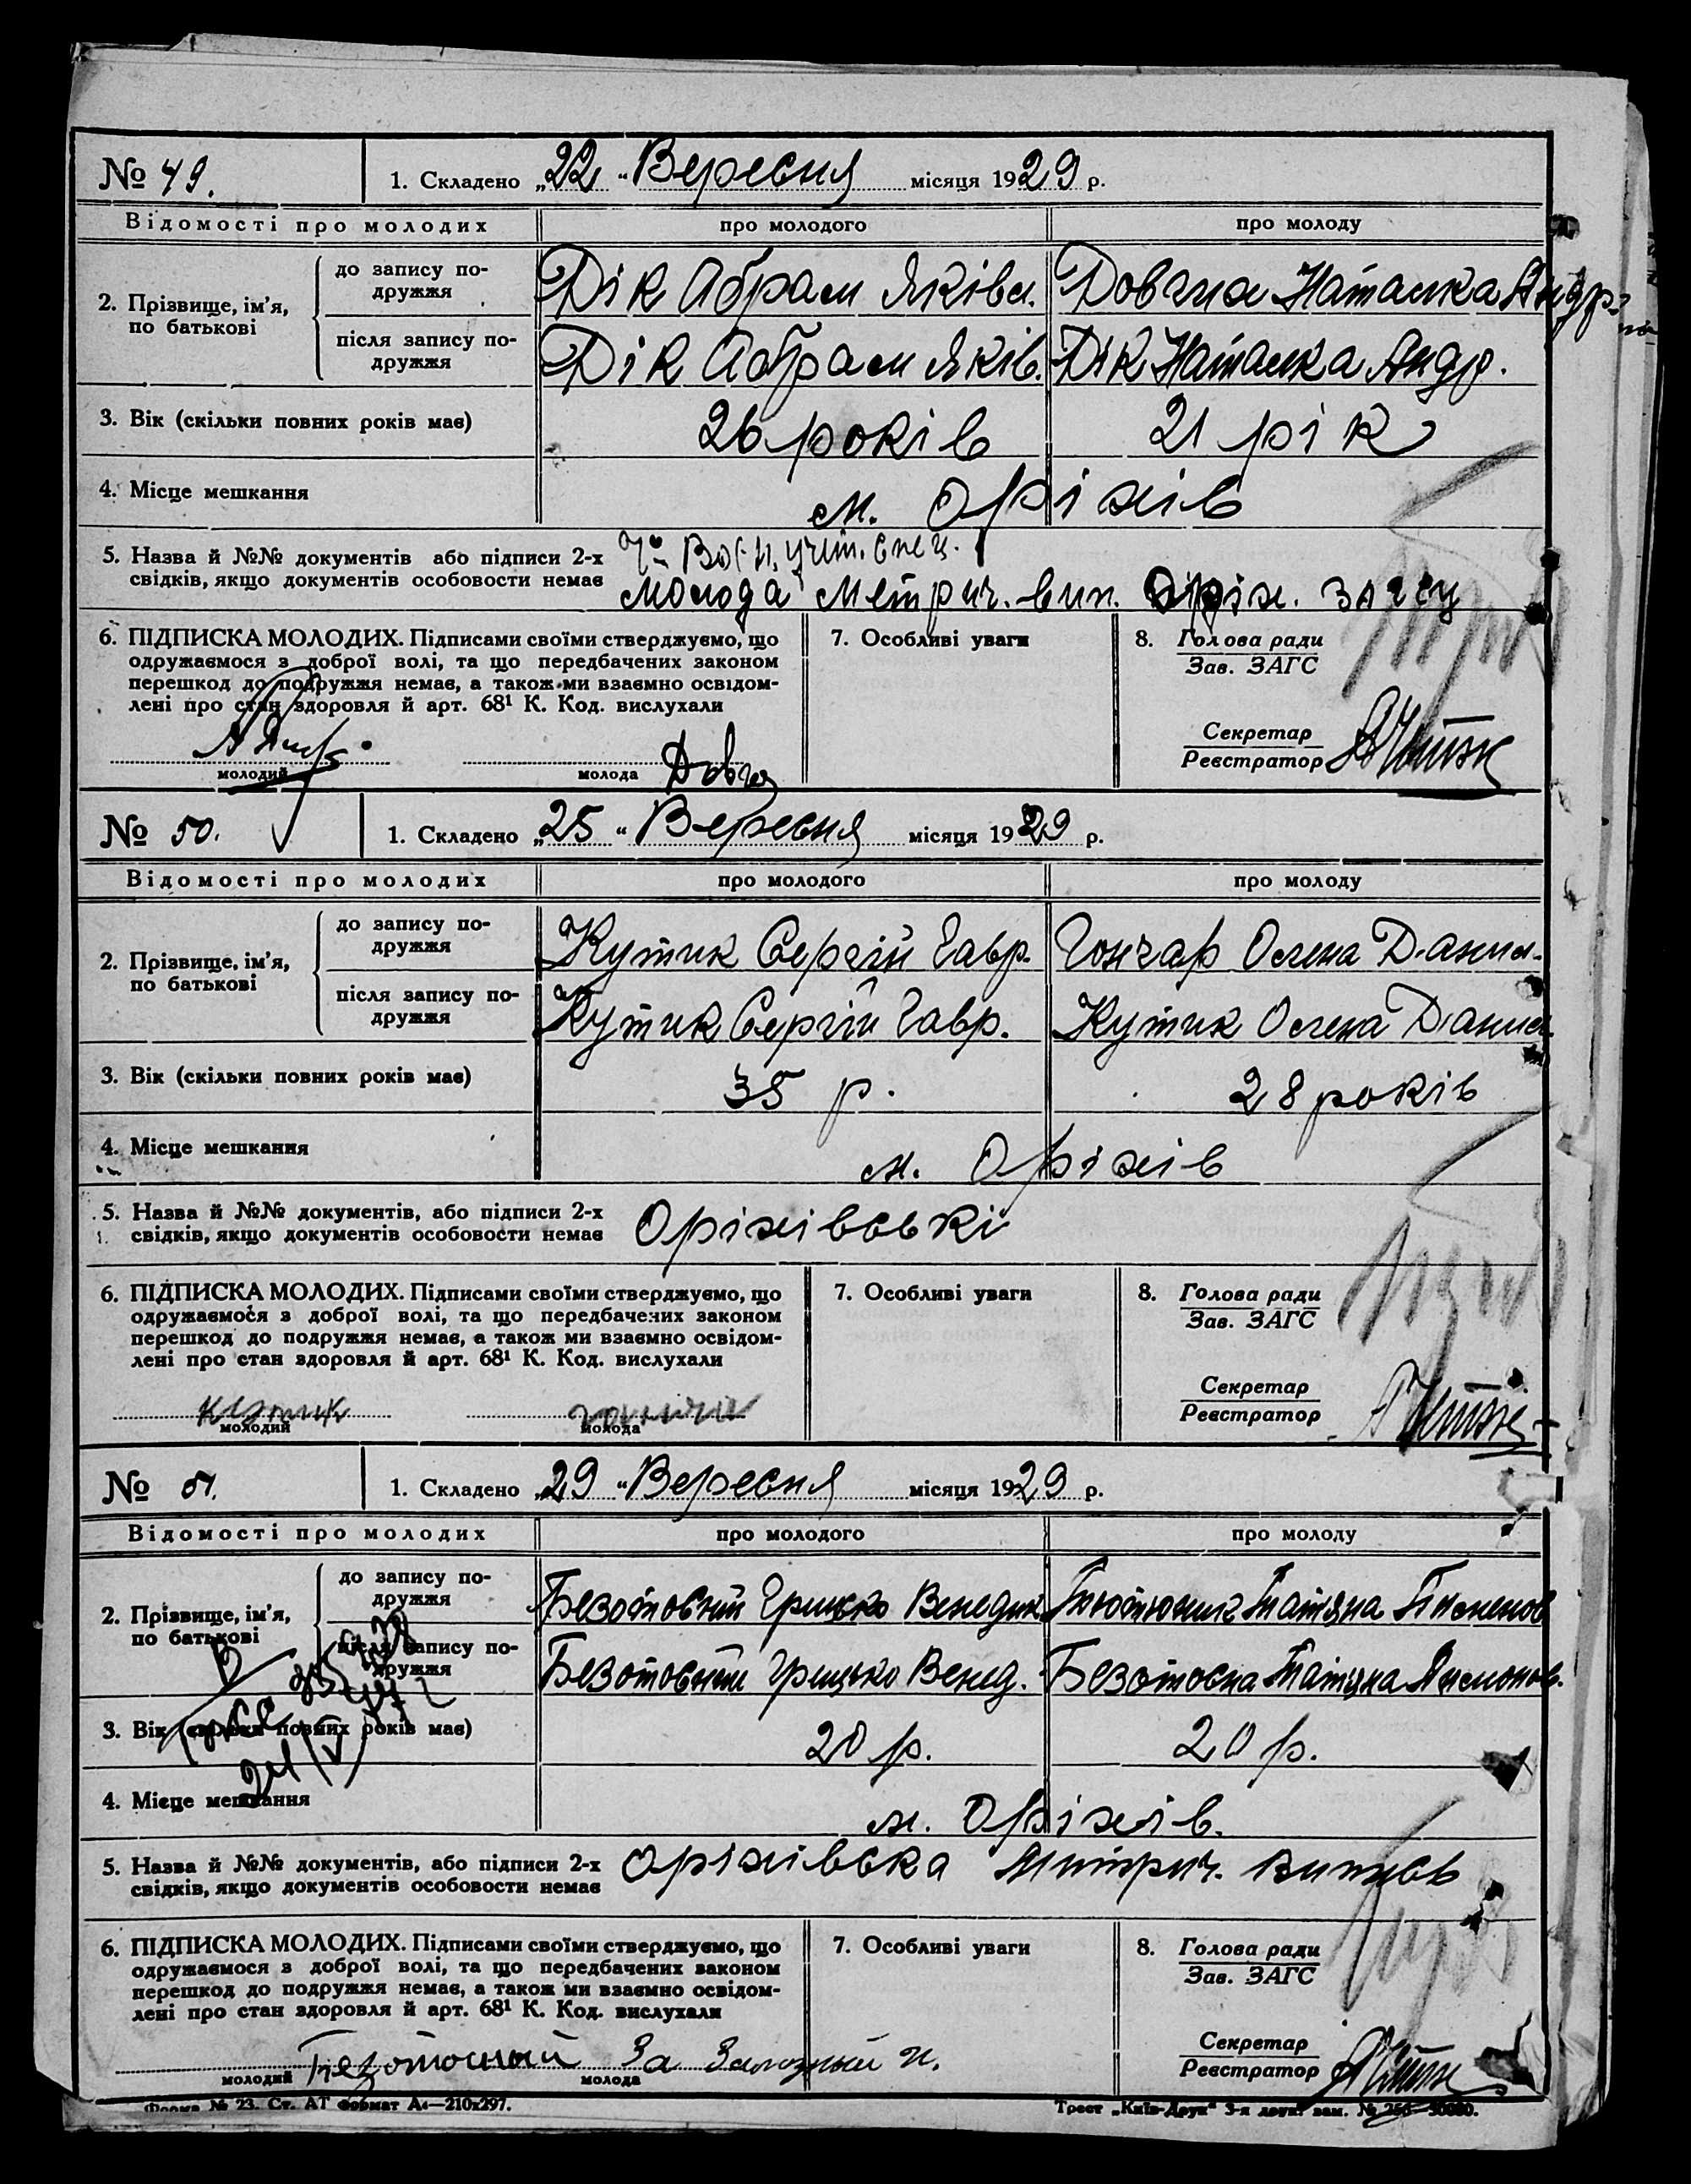 № 49. 1. Складено „22“ Вересня місяця 1929 р.
Відомості про молодих про молодого про молоду
2. Прізвище, ім'я, по батькові
до запису подружжя Дік Абрам Яківл. Довгих Наталка Андр.
після запису подружжя Дік Абрам Яків. Дік Наталка Андр.
3. Вік (скільки повних років має) 26 років 21 рік
4. Місце мешкання м. Оріхів
5. Назва й №№ документів або підписи 2-х
свідків, якщо документів особовости немає молода метрич. вип. Оріх. ЗАГСу
6. ПІДПИСКА МОЛОДИХ. Підписами своїми стверджуємо, що
одружаємося з доброї волі, та що передбачених законом
перешкод до подружжя немає, а також ми взаємно освідом-
лені про стан здоровля й арт. 68¹ К. Код. вислухали
молодий молода
7. Особливі уваги
8. Голова ради
Зав. ЗАГС
Секретар
Реєстратор
№ 50. 1. Складено „25“ Вересня місяця 1929 р.
Відомості про молодих про молодого про молоду
2. Прізвище, ім'я, по батькові
до запису подружжя Кутик Сергій Гавр. Гончар Олена Данил.
після запису подружжя Кутик Сергій Гавр. Кутик Олена Данил.
3. Вік (скільки повних років має) 35 р. 28 років
4. Місце мешкання м. Оріхів
5. Назва й №№ документів, або підписи 2-х
свідків, якщо документів особовости немає Оріхівські
6. ПІДПИСКА МОЛОДИХ. Підписами своїми стверджуємо, що
одружаємося з доброї волі, та що передбачених законом
перешкод до подружжя немає, а також ми взаємно освідом-
лені про стан здоровля й арт. 68¹ К. Код. вислухали
Кутик
молодий молода
7. Особливі уваги
8. Голова ради
Зав. ЗАГС
Секретар
Реєстратор
№ 51. 1. Складено „29“ Вересня місяця 1929 р.
Відомості про молодих про молодого про молоду
2. Прізвище, ім'я, по батькові
до запису подружжя Безотосний Грицько Венедик. Тютюник Татяна
після запису подружжя Безотосний Грицько Венед. Безотосна Татяна
3. Вік (скільки повних років має) 20 р. 20 р.
4. Місце мешкання м. Оріхів.
5. Назва й №№ документів, або підписи 2-х
свідків, якщо документів особовости немає Оріхівська метрич. випись
6. ПІДПИСКА МОЛОДИХ. Підписами своїми стверджуємо, що
одружаємося з доброї волі, та що передбачених законом
перешкод до подружжя немає, а також ми взаємно освідом-
лені про стан здоровля й арт. 68¹ К. Код. вислухали
Безотосный За
молодий молода
7. Особливі уваги
8. Голова ради
Зав. ЗАГС
Секретар
Реєстратор
Форма № 23. Ст. АТ формат А4—210x297.
Трест „Київ-Друк“ 3-я друк. зам. №